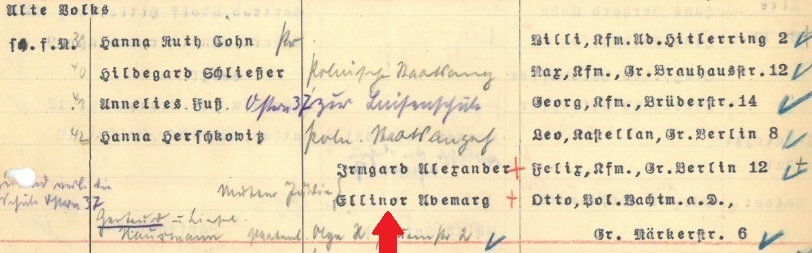 Alte Volks
sch. f. M. 39 Hanna Ruth Cohn Pr Willi, Kfm. Ad. Hitlerring 2
40 Hildegard Schließer polnische Willi Max, Kfm., Gr. Brauhausstr. 12
41 Annelies Fuß. Ostern 37 zur Luisenschule Georg, Kfm., Brüderstr. 14
42 Hanna Herschkowitz poln. Leo, Kastellan, Gr. Berlin 8
Irmgard Alexander + Felix, Kfm., Gr. Berlin 12
die Mutter Jüdin Ellinor Ademarg + Otto, Pol. Wachtm. a. D.,
Schule Ostern 37 Gertrud u. Liesel Gr. Märkerstr. 6
Olga